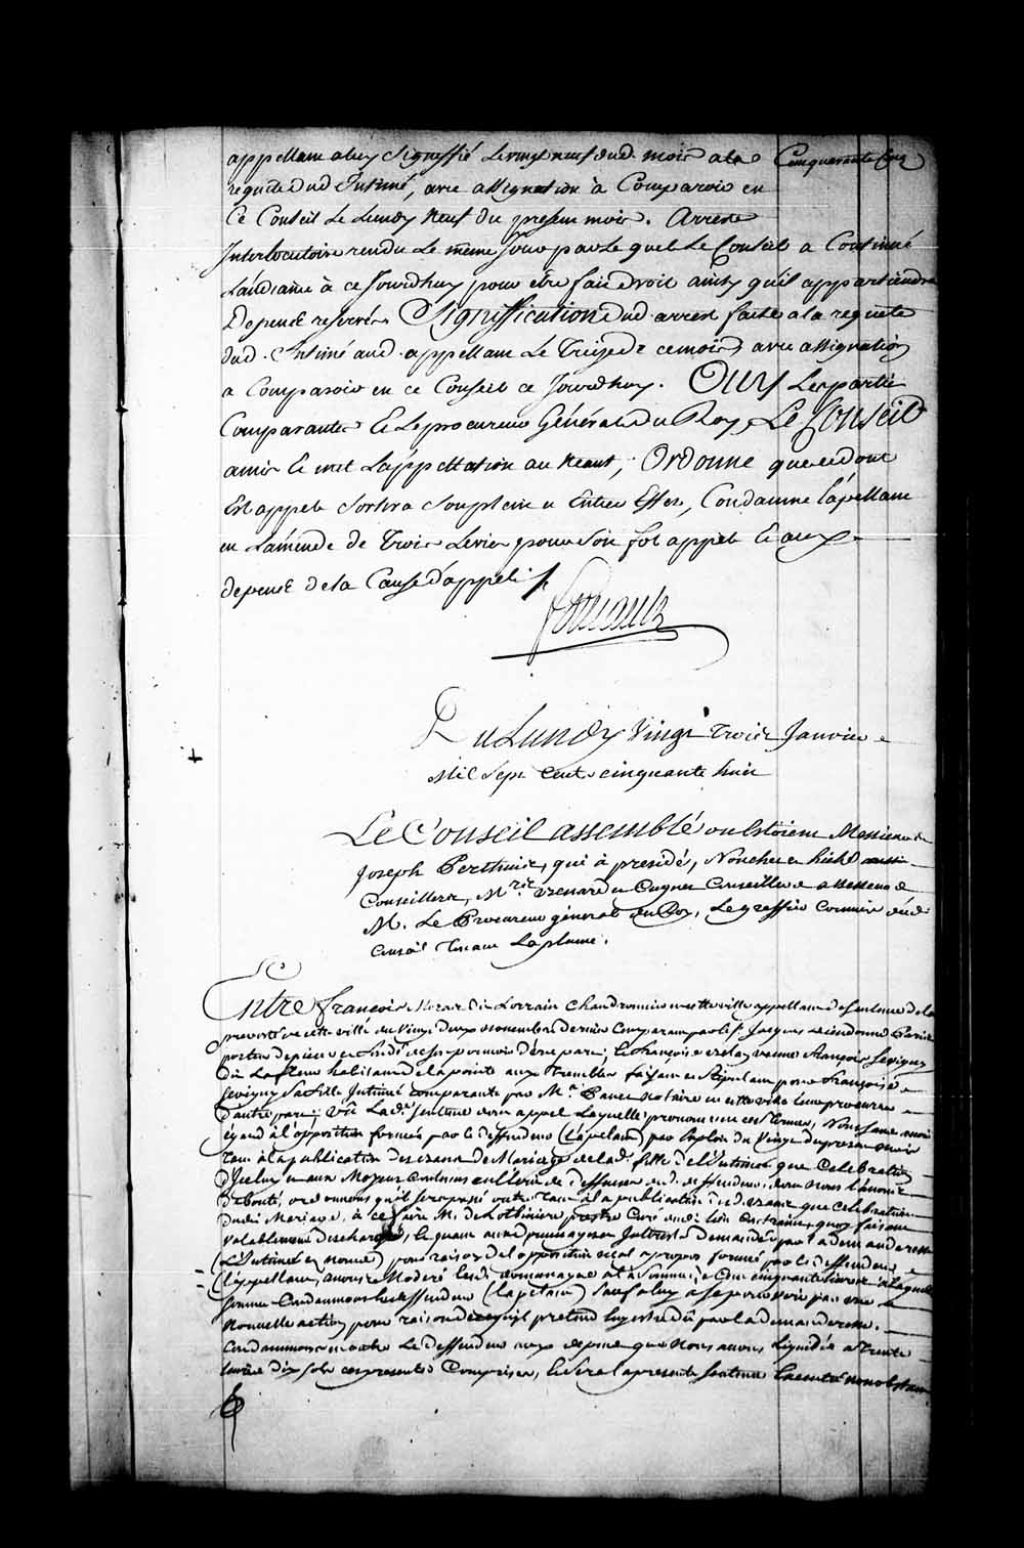 appellant a luy Signiffié Le vingt neuf dud. mois a la Cinquante Cinq
requete dud Intimé, avec assignation à Comparoir en
Ce Conseil Le Lundy Neuf du present mois. Arrest
Interlocutoire rendu Le même Jour par Le quel Le Conseil a Continué
L'audiance à ce Jourdhuy pour être fait droit ainsy qu'il appartiendra
Depens reservés Signiffication dud arrest faite a la requete
dud. Intimé aud. appellant Le Treize de ce mois avec assignation
a Comparoir en ce Conseil ce Jourdhuy. Ouy Les parties
Comparantes Et Le procureur Général du Roy, Le Conseil
a mis Et met L'appellation au Neant, Ordonne que ce dont
Est appel Sortira Son plein et Entier Effet, Condamne l'apellant
en L'amende de Trois Livres pour Son fol appel Et aux
depens de la Cause d'appel
Foucault
Du Lundy Vingt Trois Janvier
Mil Sept Cent cinquante huit
Le Conseil assemblé ou Estoient Messieurs
Joseph Perthuis, qui à presidé, Nouchet et
Conseillers, Mre. Conseiller assesseur
M. Le Procureur général du Roy, Le greffier Commis dud
Conseil Tenant La plume.
Entre François dit Lorrain en cette ville appellant de Sentence de la
prevosté de cette ville du Vingt deux Novembre Dernier Comparant par le Sr. Jacques
porteur de pieces d'une part; Et François Sevigny
dit Lafleur habitant de la pointe aux Trembles faisant et Stipulant pour Françoise
Sevigny Sa fille Intimé Comparante par Me. Panet Notaire en cette ville Leur procureur
d'autre part; Vû La de. Sentence dont appel Laquelle prononcée en ces Termes, Nous Sans avoir
égard à l'opposition formée par le deffendeur (l'apelant) par Exploit du Vingt du present mois
Tant à la publication des bans de Mariage de lad. fille de L'Intimé que Celebration
D'Iceluy et aux Moyens Contenus deffenses dud. deffendeur, dont Nous l'avons
Debouté, ordonnons qu'il Sera passé outre Tant à la publication des d. bans que celebration
dudit Mariage, à ce faire M. de Lotbiniere prestre Curé dud. lieu Contraint, quoy faisant
Valablement dechargé, Et quant aux dommages Interests Demandés par la demanderesse
(L'Intimée Es noms) pour raison de l'opposition mal a propos formée par le deffendeur
(l'appellant, avons Moderé lesd. dommages a la Somme de Cinquante livres à laquelle
Somme Condamnons led. deffendeur (l'apelant) Sauf a luy a Se pourvoir par une
Nouvelle action pour raison de ce qu'il pretend luy estre dû par la demanderesse.
Condamnons en outre Le deffendeur aux depens que Nous avons Liquidés a Trente
livres dix sols ces presentes Comprises, Et Sera la presente Sentence Executée nonobstant